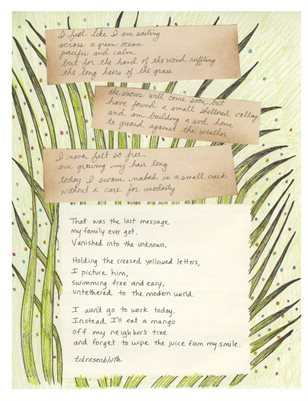 I feel like I am sailing
across a green ocean
pacific and calm
but for the hand of the wind ruffling
the long hairs of the grass.
the snows will come soon but
have found a small sheltered valley
and am building a sod home
to guard against the weather
I never felt so free,
am growing my hair long
today I swam naked in a small creek
without a care for modesty
That was the last message
my family ever got.
Vanished into the unknown.
Holding the creased yellowed letters,
I picture him,
swimming free and easy,
untethered to the modern world.
I won't go to work today.
Instead I'll eat a mango
off my neighbor's tree
and forget to wipe the juice from my smile.
tdrosenbluth